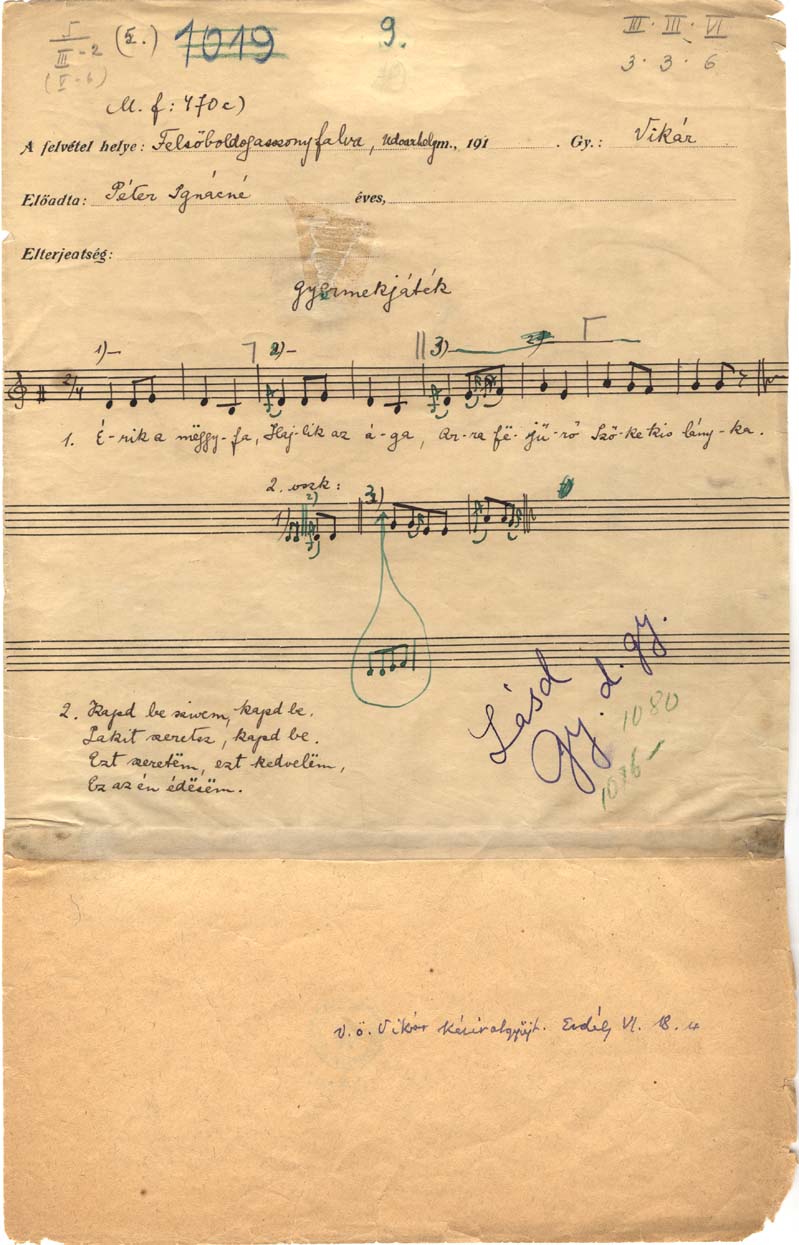 5 III-2 (5.) 1019 9. III · III · VI
(V-6) 3 · 3 · 6
M. f: 470c)
A felvétel helye: Felsőboldogasszonyfalva, Udvarhelym., 191 . Gy.: Vikár
Előadta: Péter Ignácné éves,
Elterjeatség:
gyermekjáték
1) 2) 3)
2/4
1. É-rik a mëggy-fa, Haj-lik az á-ga, Ar-ra fë- jű-rő Ször-ke kis lány-ka.
2. oszk:
1) 2) 3)
2. Kapd be szivem, kapd be.
Lakit szeretsz, kapd be.
Ezt szeretëm, ezt kedvelëm,
Ez az én édësëm.
Lásd
Gy. d. gy.
1080
1076
V. ö. Vikár kéziratgyűjt. Erdély VI. 18. 4